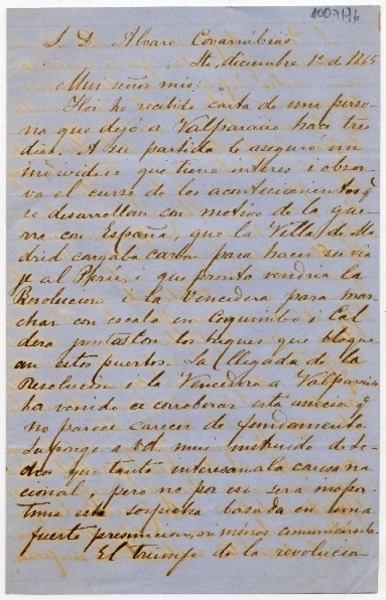 S. D. Alvaro Covarrúbias
St, diciembre 1º de 1865
Mui señor mio:
Hoi he recibido carta de una perso
na que dejó a Valparaiso hace tres
dias. A su partida le aseguro un
individuo que tiene interes i obser
va el curso de los acontecimientos q
se desarrollan con motivo de la gue
rra con España, que la Villa de Ma
drid cargaba carbon para hacer su via
je al Perú, i que pronto vendria la
Resolucion i la Vencedora para mar
char con escala en Coquimbo i Cal
dera con los buques que bloque
an estos puertos. La llegada de la
Resolucion o la Vencedora a Valparaiso
ha venido a corroborar esta q
no parece carecer de fundamento.
Supongo a Vd. mui instruido de to
do que tanto interesa a la causa na
cional, pero no por eso será inopor
tuna esta sospecha basada en una
fuerte presuncion, ni ménos comunicársela.
El triunfo de la revolucion